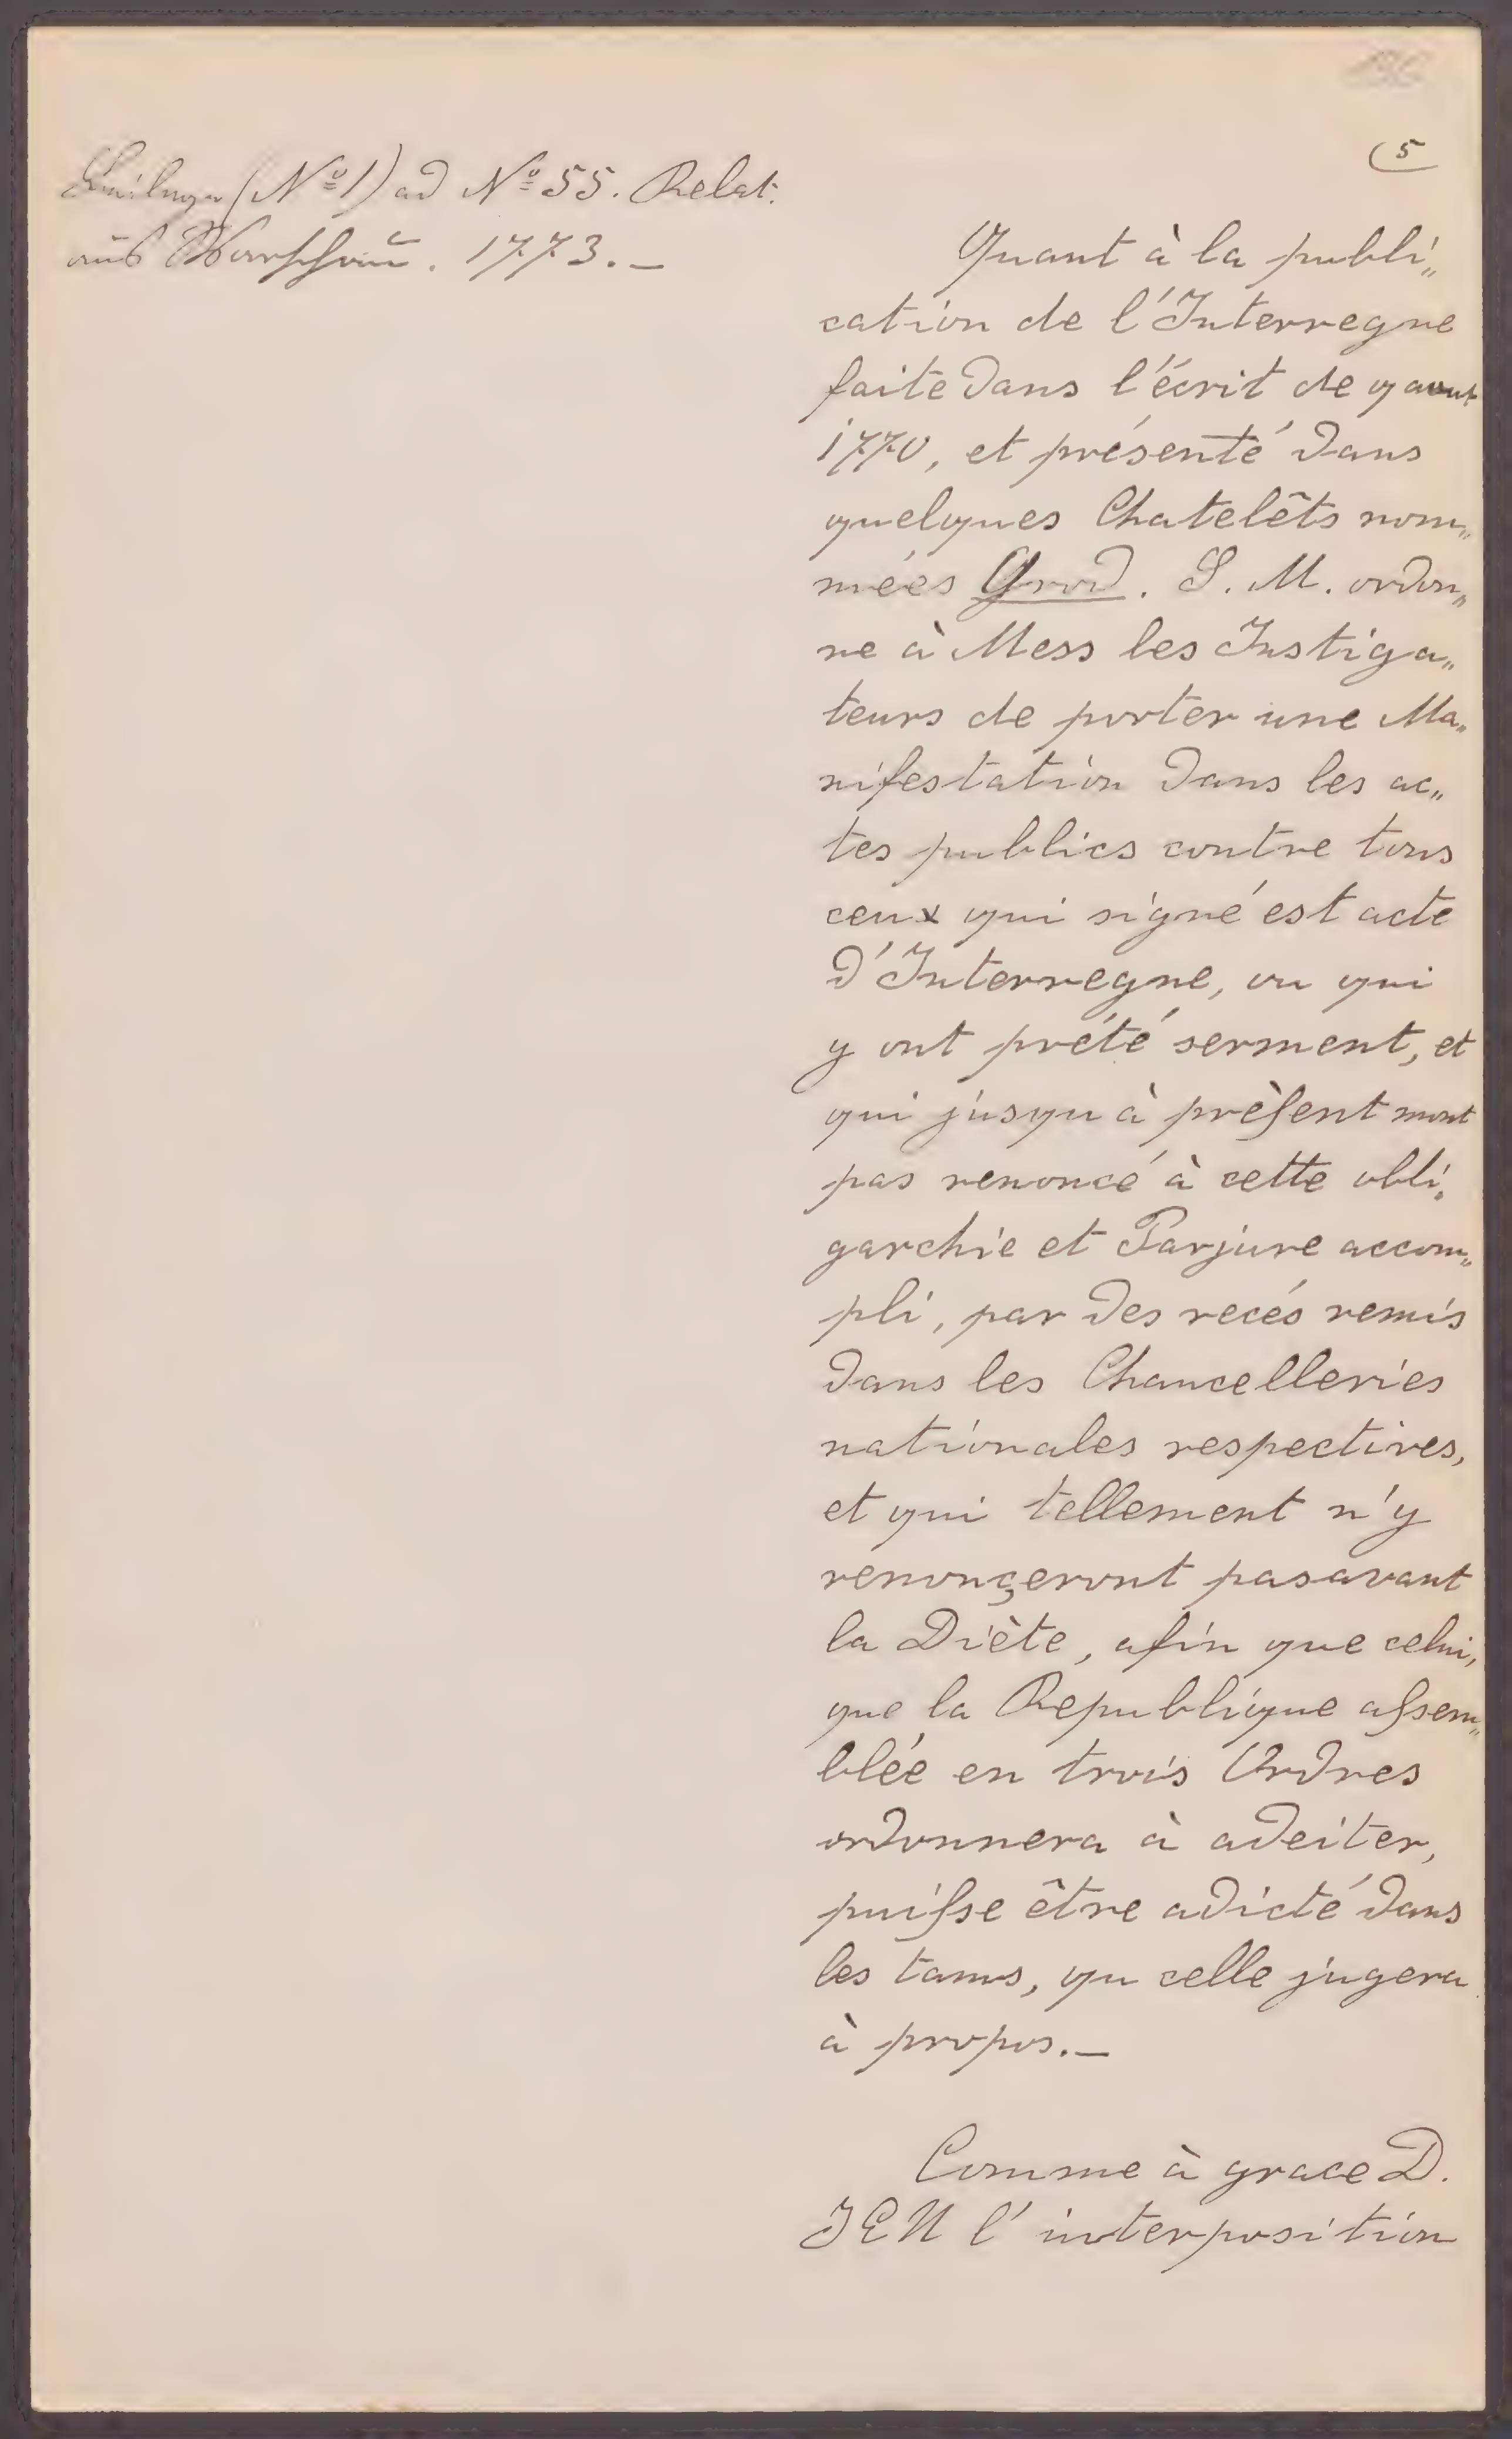 5
Beilage (Nº 1) ad Nº 55. Relat:
aus Warschau. 1773.—
Quant à la publi„
cation de l'Interregne
faite dans l'écrit de 9 aout
1770, et présenté dans
quelques Chatelêts nom„
mées Grod. S. M. ordon„
ne à Mess les Instiga„
teurs de porter une Ma„
nifestation dans les ac„
tes publics contre tous
ceux qui signé est acte
d'Interregne, ou qui
y ont prété serment, et
qui jusqu à prèsent mont
pas renoncé à cette obli„
garchie et Parjure accom„
pli, par des recés remis
dans les Chancelleries
nationales respectives,
et qui tellement n'y
renonçeront pasavant
la Diète, afin que celui,
que la Republique assem„
blée en trois Ordres
ordonnera à adeiter,
puisse être adicté dans
les tams, qu celle jugera
à propos.—
Comme à grace D.
IEU l'interposition